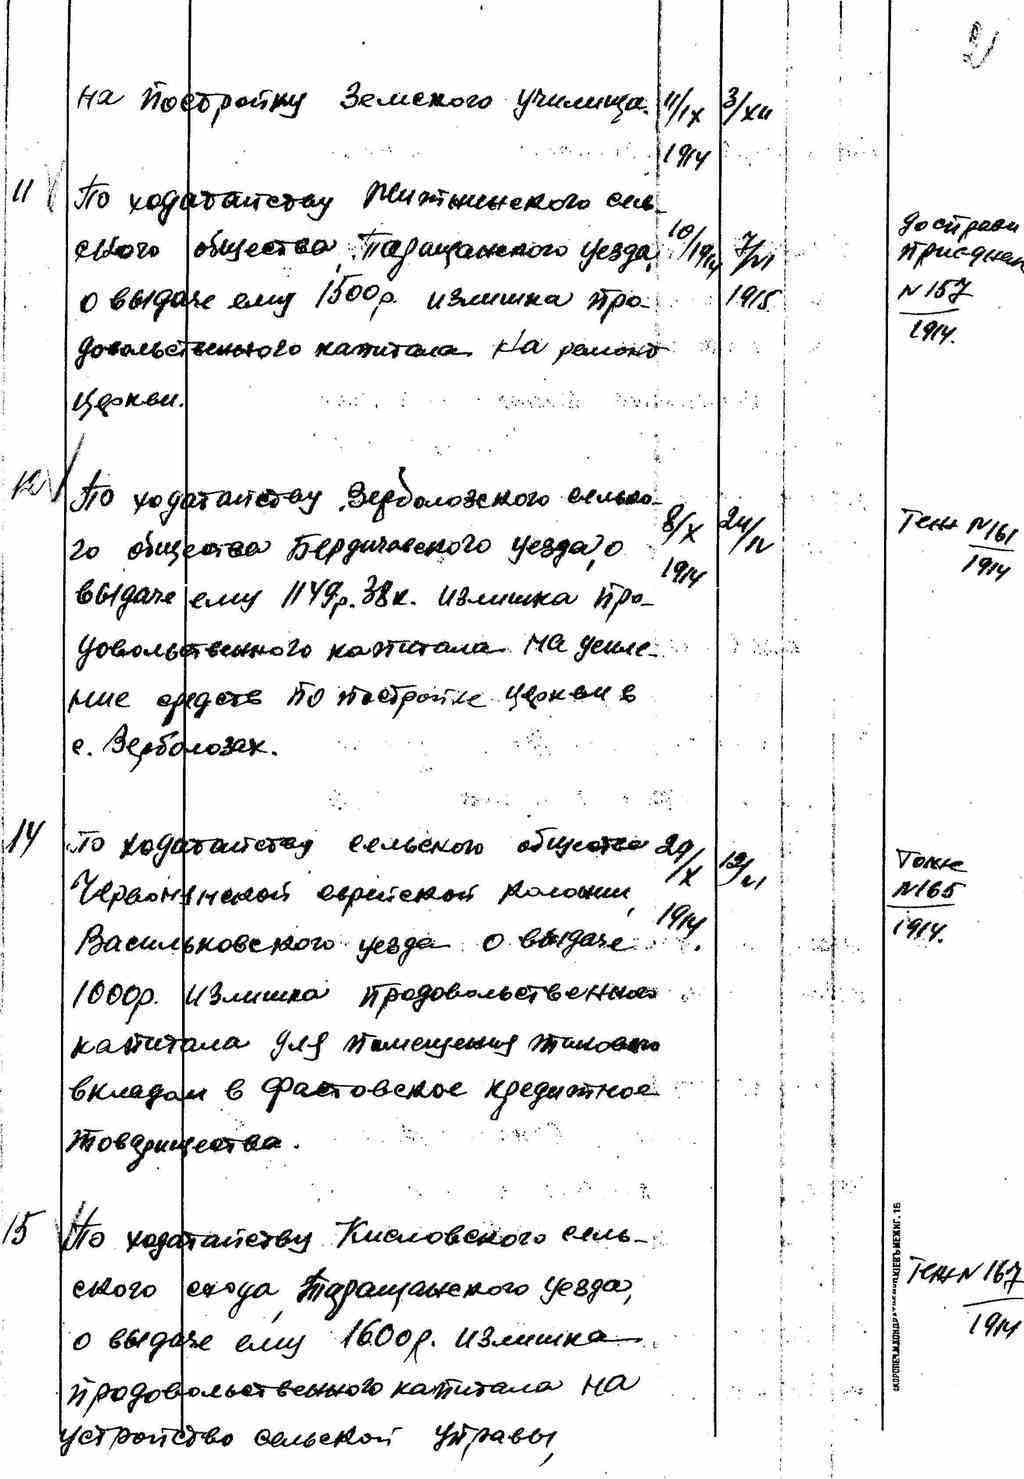 21
на постройку Земского училища. 11/IX 3/XII
1914
11 По ходатайству Житынинского сель-
ского общества, Таращанского уезда, 10/1914 7/VI
о выдаче ему 1500р. излишка про- 1915
довольственного капитала на ремонт
церкви.
N 157
1914.
12 По ходатайству Верболозского сельско-
го общества Бердичевского уезда, о 8/X 24/IV
выдаче ему 1149р.38к. излишка про- 1914
довольственного капитала на усиле-
ние средств по постройке церкви в
с. Верболозах.
N 161
1914
14 По ходатайству сельского общества 29/X 12/VI
Червонянской еврейской колонии, 1914.
Васильковского уезда о выдаче
1000р. излишка продовольственного
капитала для помещения такового
вкладом в Фастовское кредитное
товарищества.
N 165
1914.
15 По ходатайству Кисловского сель-
ского схода, Таращанского уезда,
о выдаче ему 1600р. излишка
продовольственного капитала на
устройство сельской управы,
N 167
1914